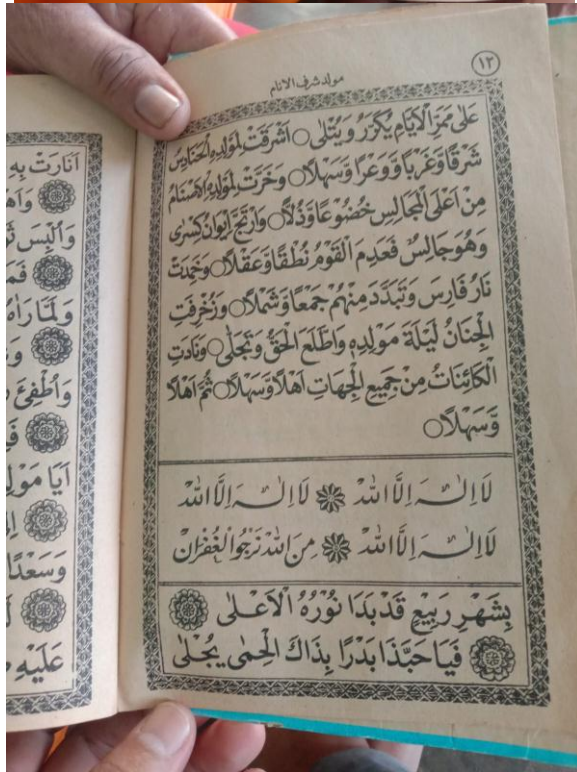 ١٣
مولد شرف الانام
عَلٰى مَمَرِّ الْاَيَّامِ يُكَرَّرُ وَيُتْلٰى○ اَشْرَقَتْ لِمَوْلِدِهِ الْحَنَادِسُ
شَرْقًا وَّغَرْبًا وَّوَعْرًا وَّسَهْلًا○ وَخَرَّتْ لِمَوْلِدِهِ الْاَصْنَامُ
مِنْ اَعْلَى الْمَجَالِسِ خُضُوْعًا وَّذُلًّا○ وَارْتَجَّ اِيْوَانُ كِسْرٰى
وَهُوَ جَالِسٌ فَعَدِمَ الْقَوْمُ نُطْقًا وَّعَقْلًا○ وَخَمِدَتْ
نَارُ فَارِسَ وَتَبَدَّدَ مِنْهُمْ جَمْعًا وَّشَمْلًا○ وَزُخْرِفَتِ
الْجِنَانُ لَيْلَةَ مَوْلِدِهٖ وَاطَّلَعَ الْحَقُّ وَتَجَلّٰى○ وَنَادَتِ
الْكَائِنَاتُ مِنْ جَمِيْعِ الْجِهَاتِ اَهْلًا وَّسَهْلًا○ ثُمَّ اَهْلًا
وَّسَهْلًا○
لَا اِلٰـهَ اِلَّا اللهْ ❁ لَا اِلٰـهَ اِلَّا اللهْ
لَا اِلٰـهَ اِلَّا اللهْ ❁ مِنَ اللهْ نَرْجُوا الْغُفْرَانْ
بِشَهْرِ رَبِيْعٍ قَدْ بَدَا نُوْرُهُ الْاَعْـلٰى ❁
❁ فَيَا حَبَّذَا بَدْرًا بِذَاكَ الْحِمٰى يُجْلٰى
اَنَارَتْ بِهِ
وَاَلْبَسَ
وَلَمَّا رَاٰهُ
وَاُطْفِئَ
اَيَا مَوْلِدَ
وَسَعْدًا
عَلَيْهِ